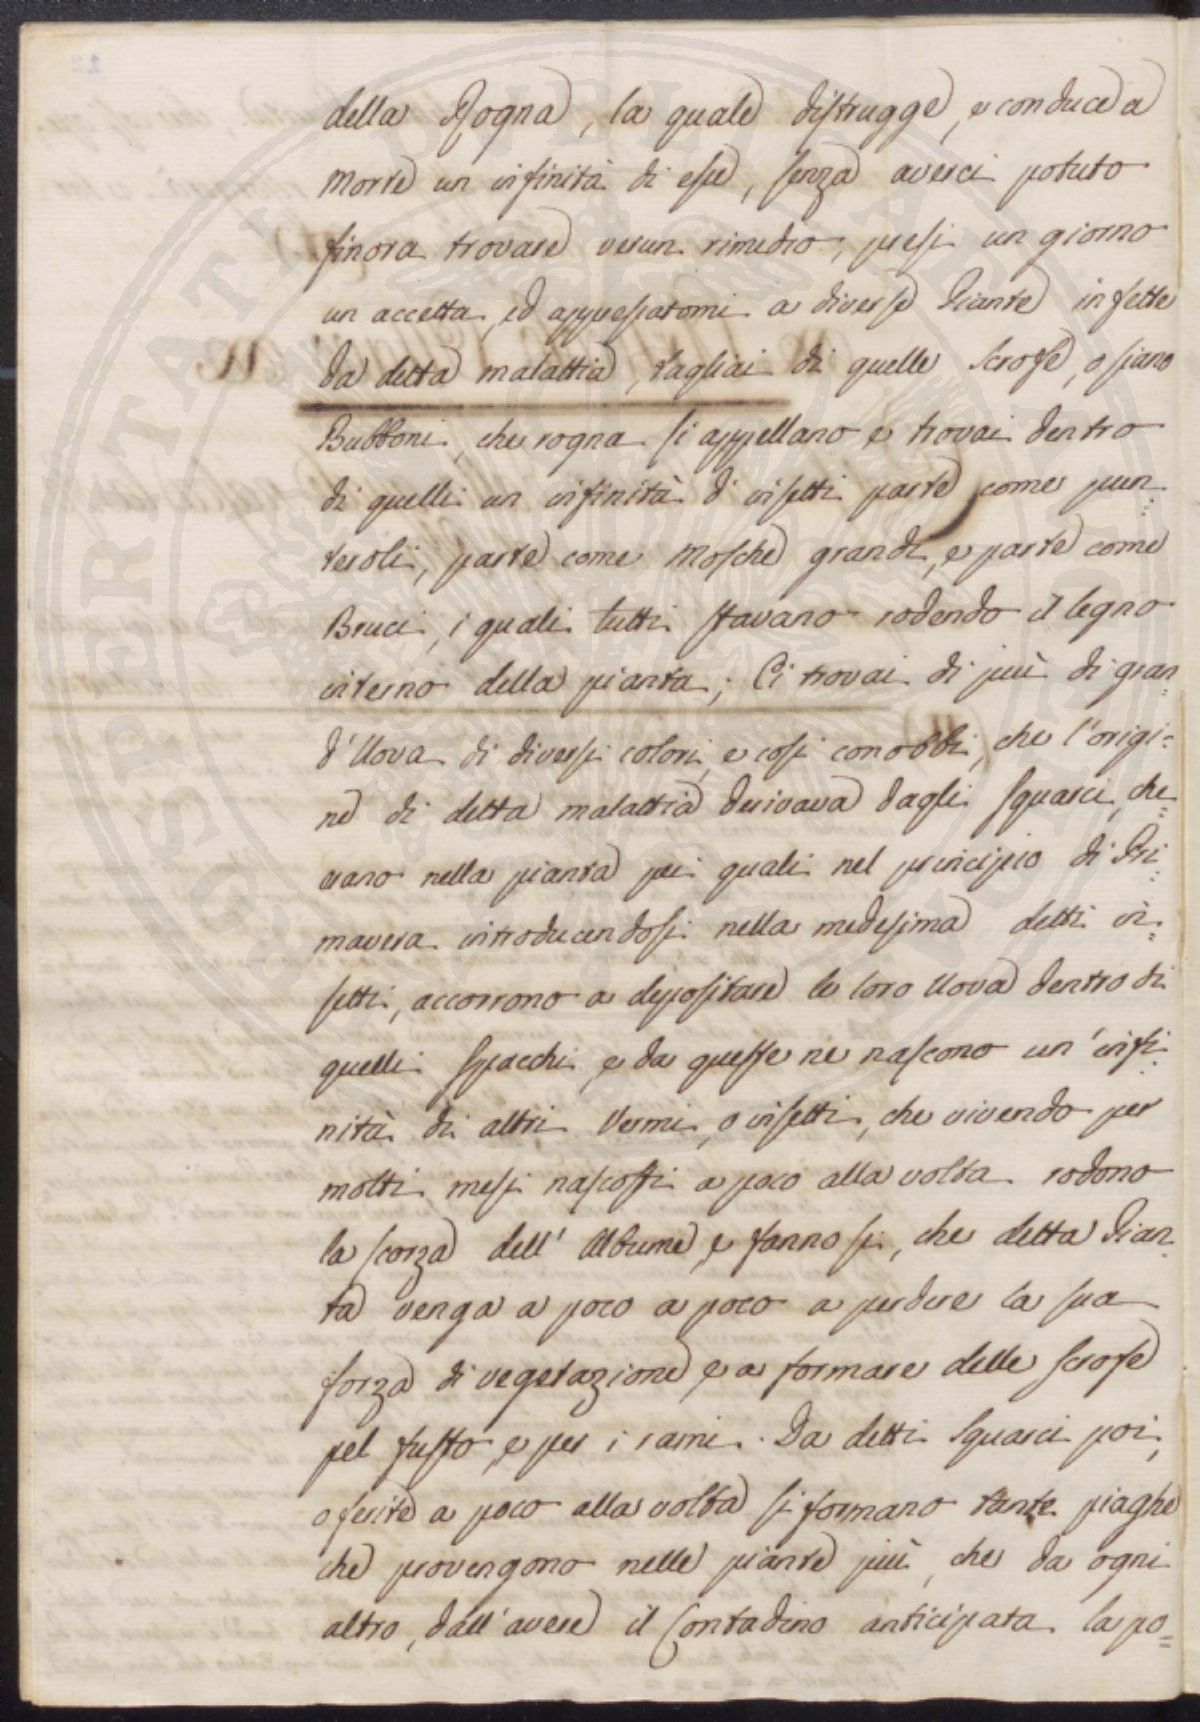 della Rogna, la quale distrugge, e conduce a
morte un infinità di esse, senza averci potuto
finora trovare verun rimedio, presi un giorno
un accetta, ed appressatomi a diverse Piante infette
da detta malattia, tagliai di quelle Scrofe, o siano
Bubboni, che rogna si appellano e trovai dentro
di quelli un infinità d'insetti parte come pun=
teroli, parte come Mosche grandi, e parte come
Bruci, i quali tutti stavano rodendo il legno
interno della pianta; Ci trovai di più di gran=
d'Uova di diversi colori, e così conobbi, che l'origi=
ne di detta malattia derivava dagli Squarci, che=
erano nella pianta pei quali nel principio di Pri=
mavera introducendosi nella medesima detti in=
setti, accorrono a depositare le loro Uova dentro di
quelli Spacchi, e da queste ne nascono un'infi=
nità di altri Vermi, o insetti, che vivendo per
molti mesi nascosti a poco alla volta rodono
la scorza dell'Albume, e fanno sì, che detta Pian=
ta venga a poco a poco a perdere la sua
forza di vegetazione, e a formare delle Scrofe
pel fusto, e per i rami. Da detti Squarci poi,
o ferite a poco alla volta si formano tante piaghe
che provengono nelle piante più, che da ogni
altro, dall'avere il Contadino anticipata la po=